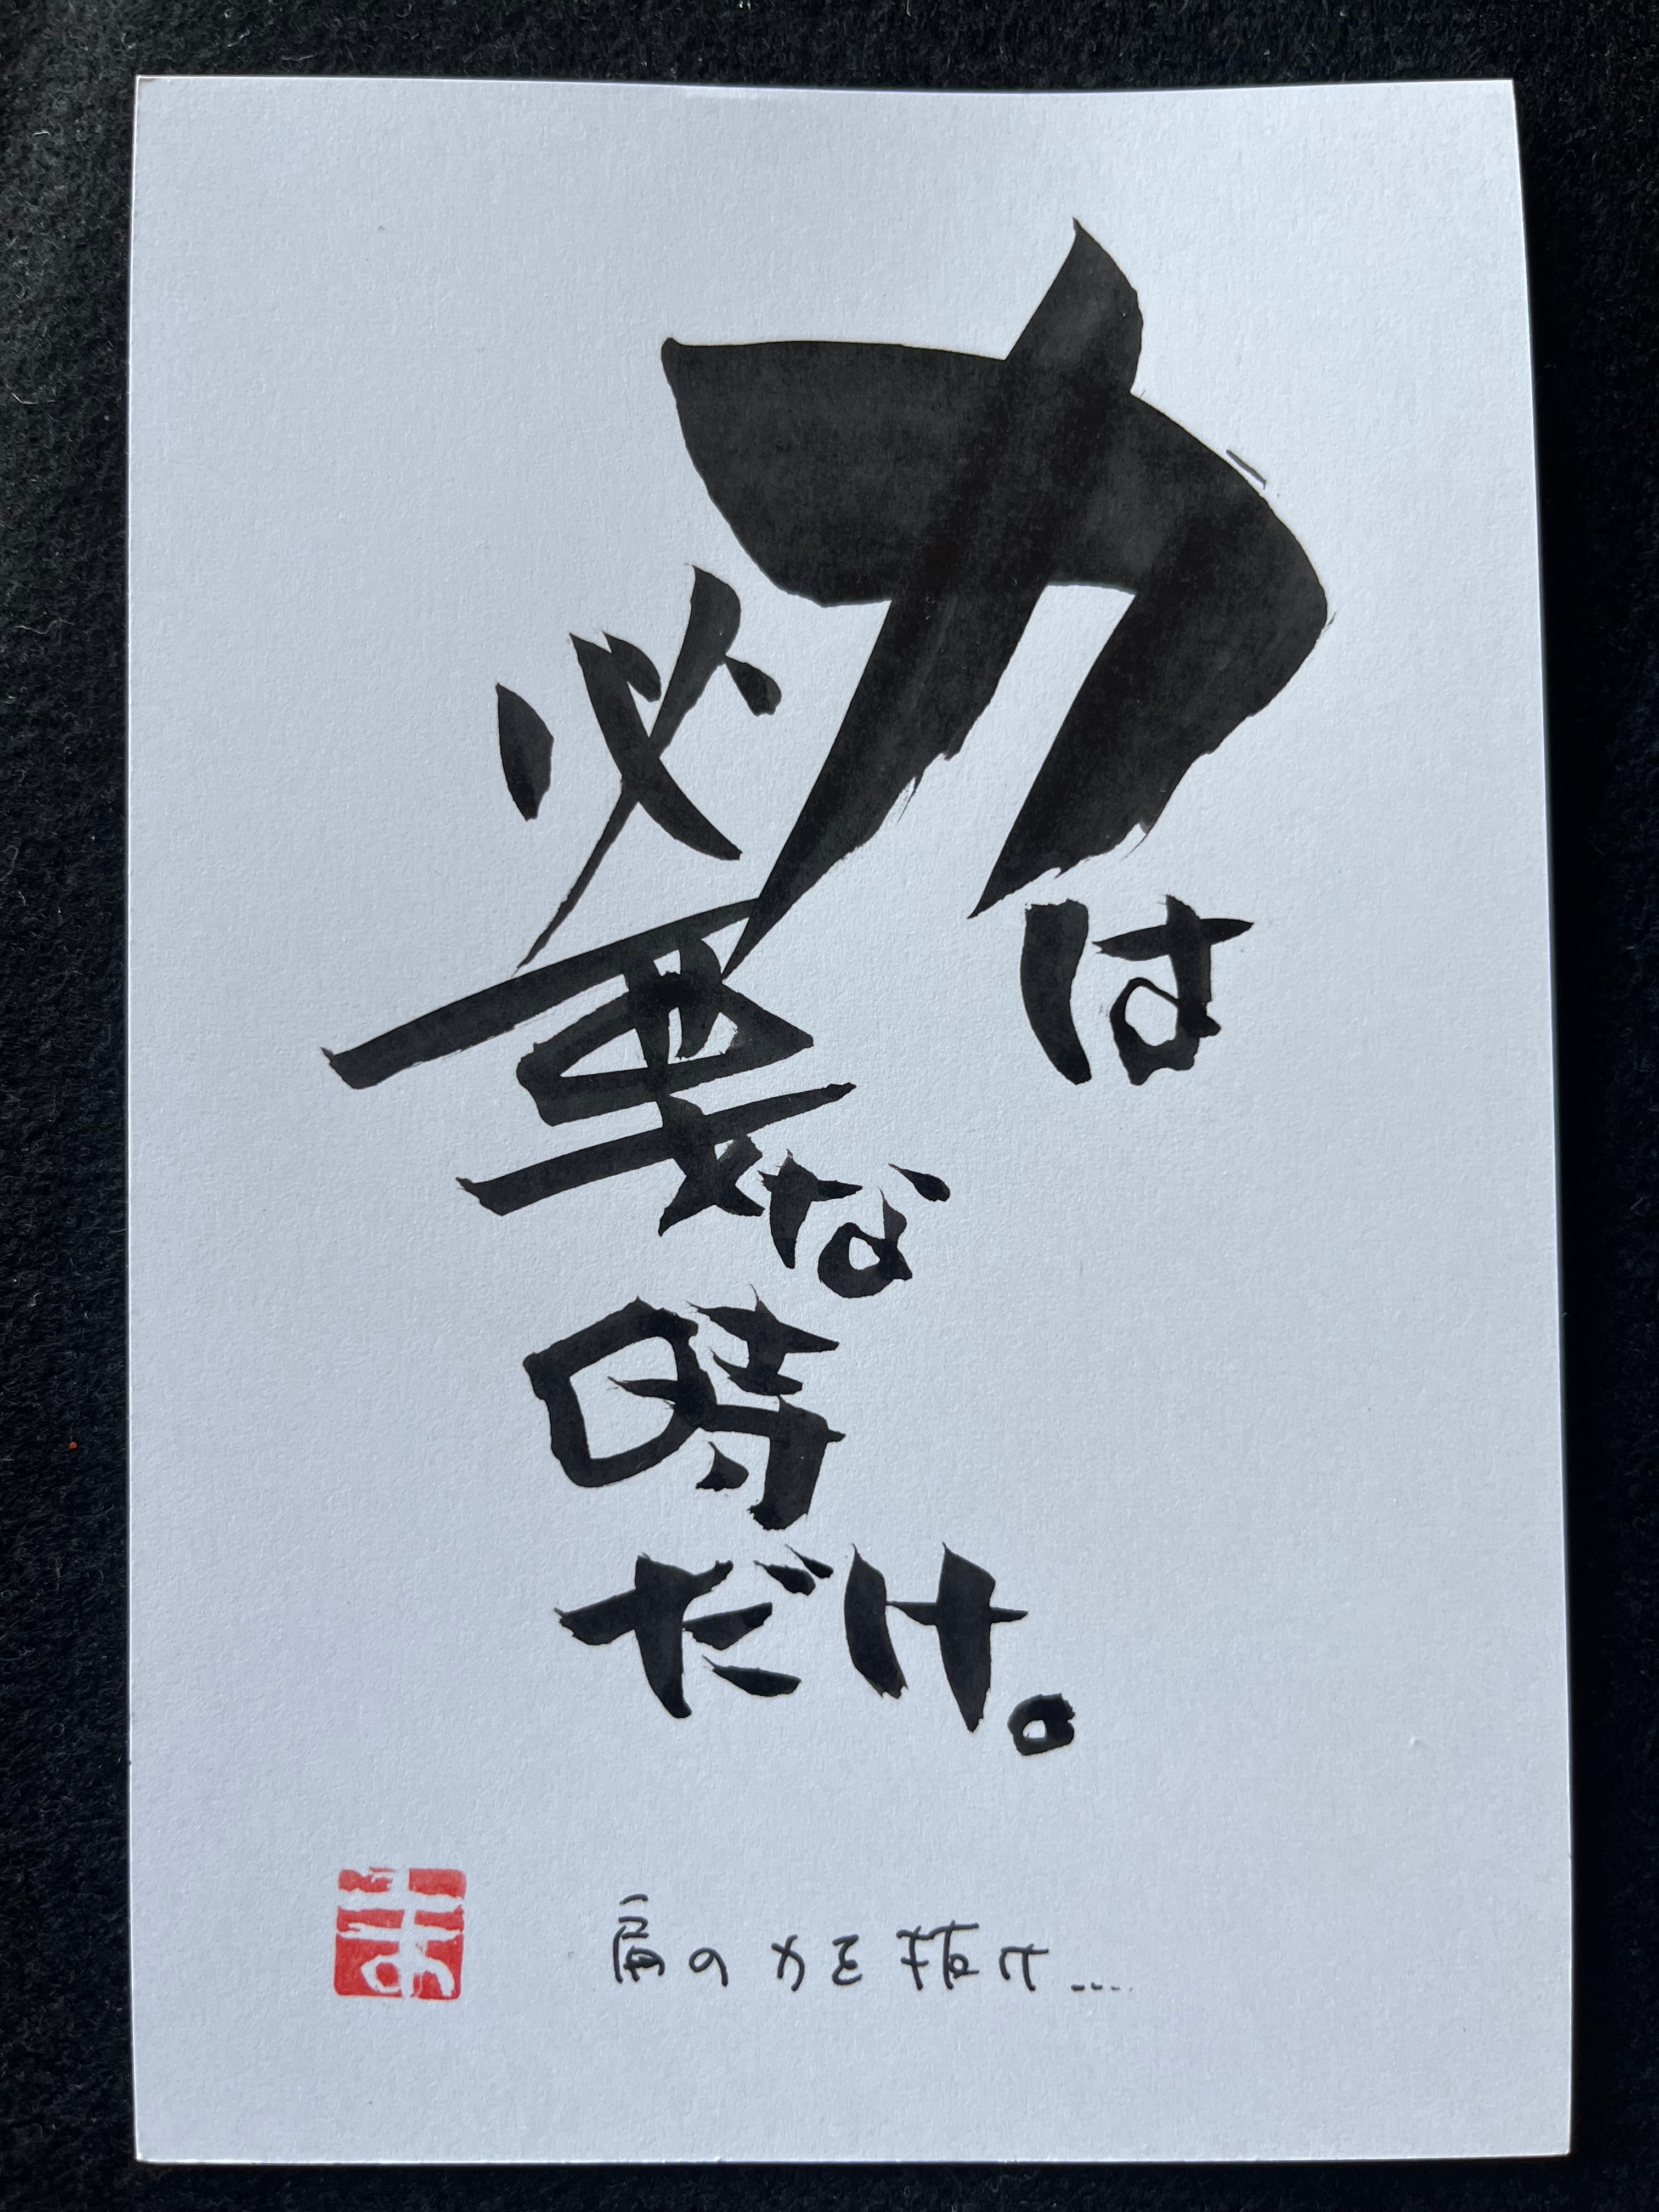 力は
必要な
時
だけ。
肩の力を抜け....
ま